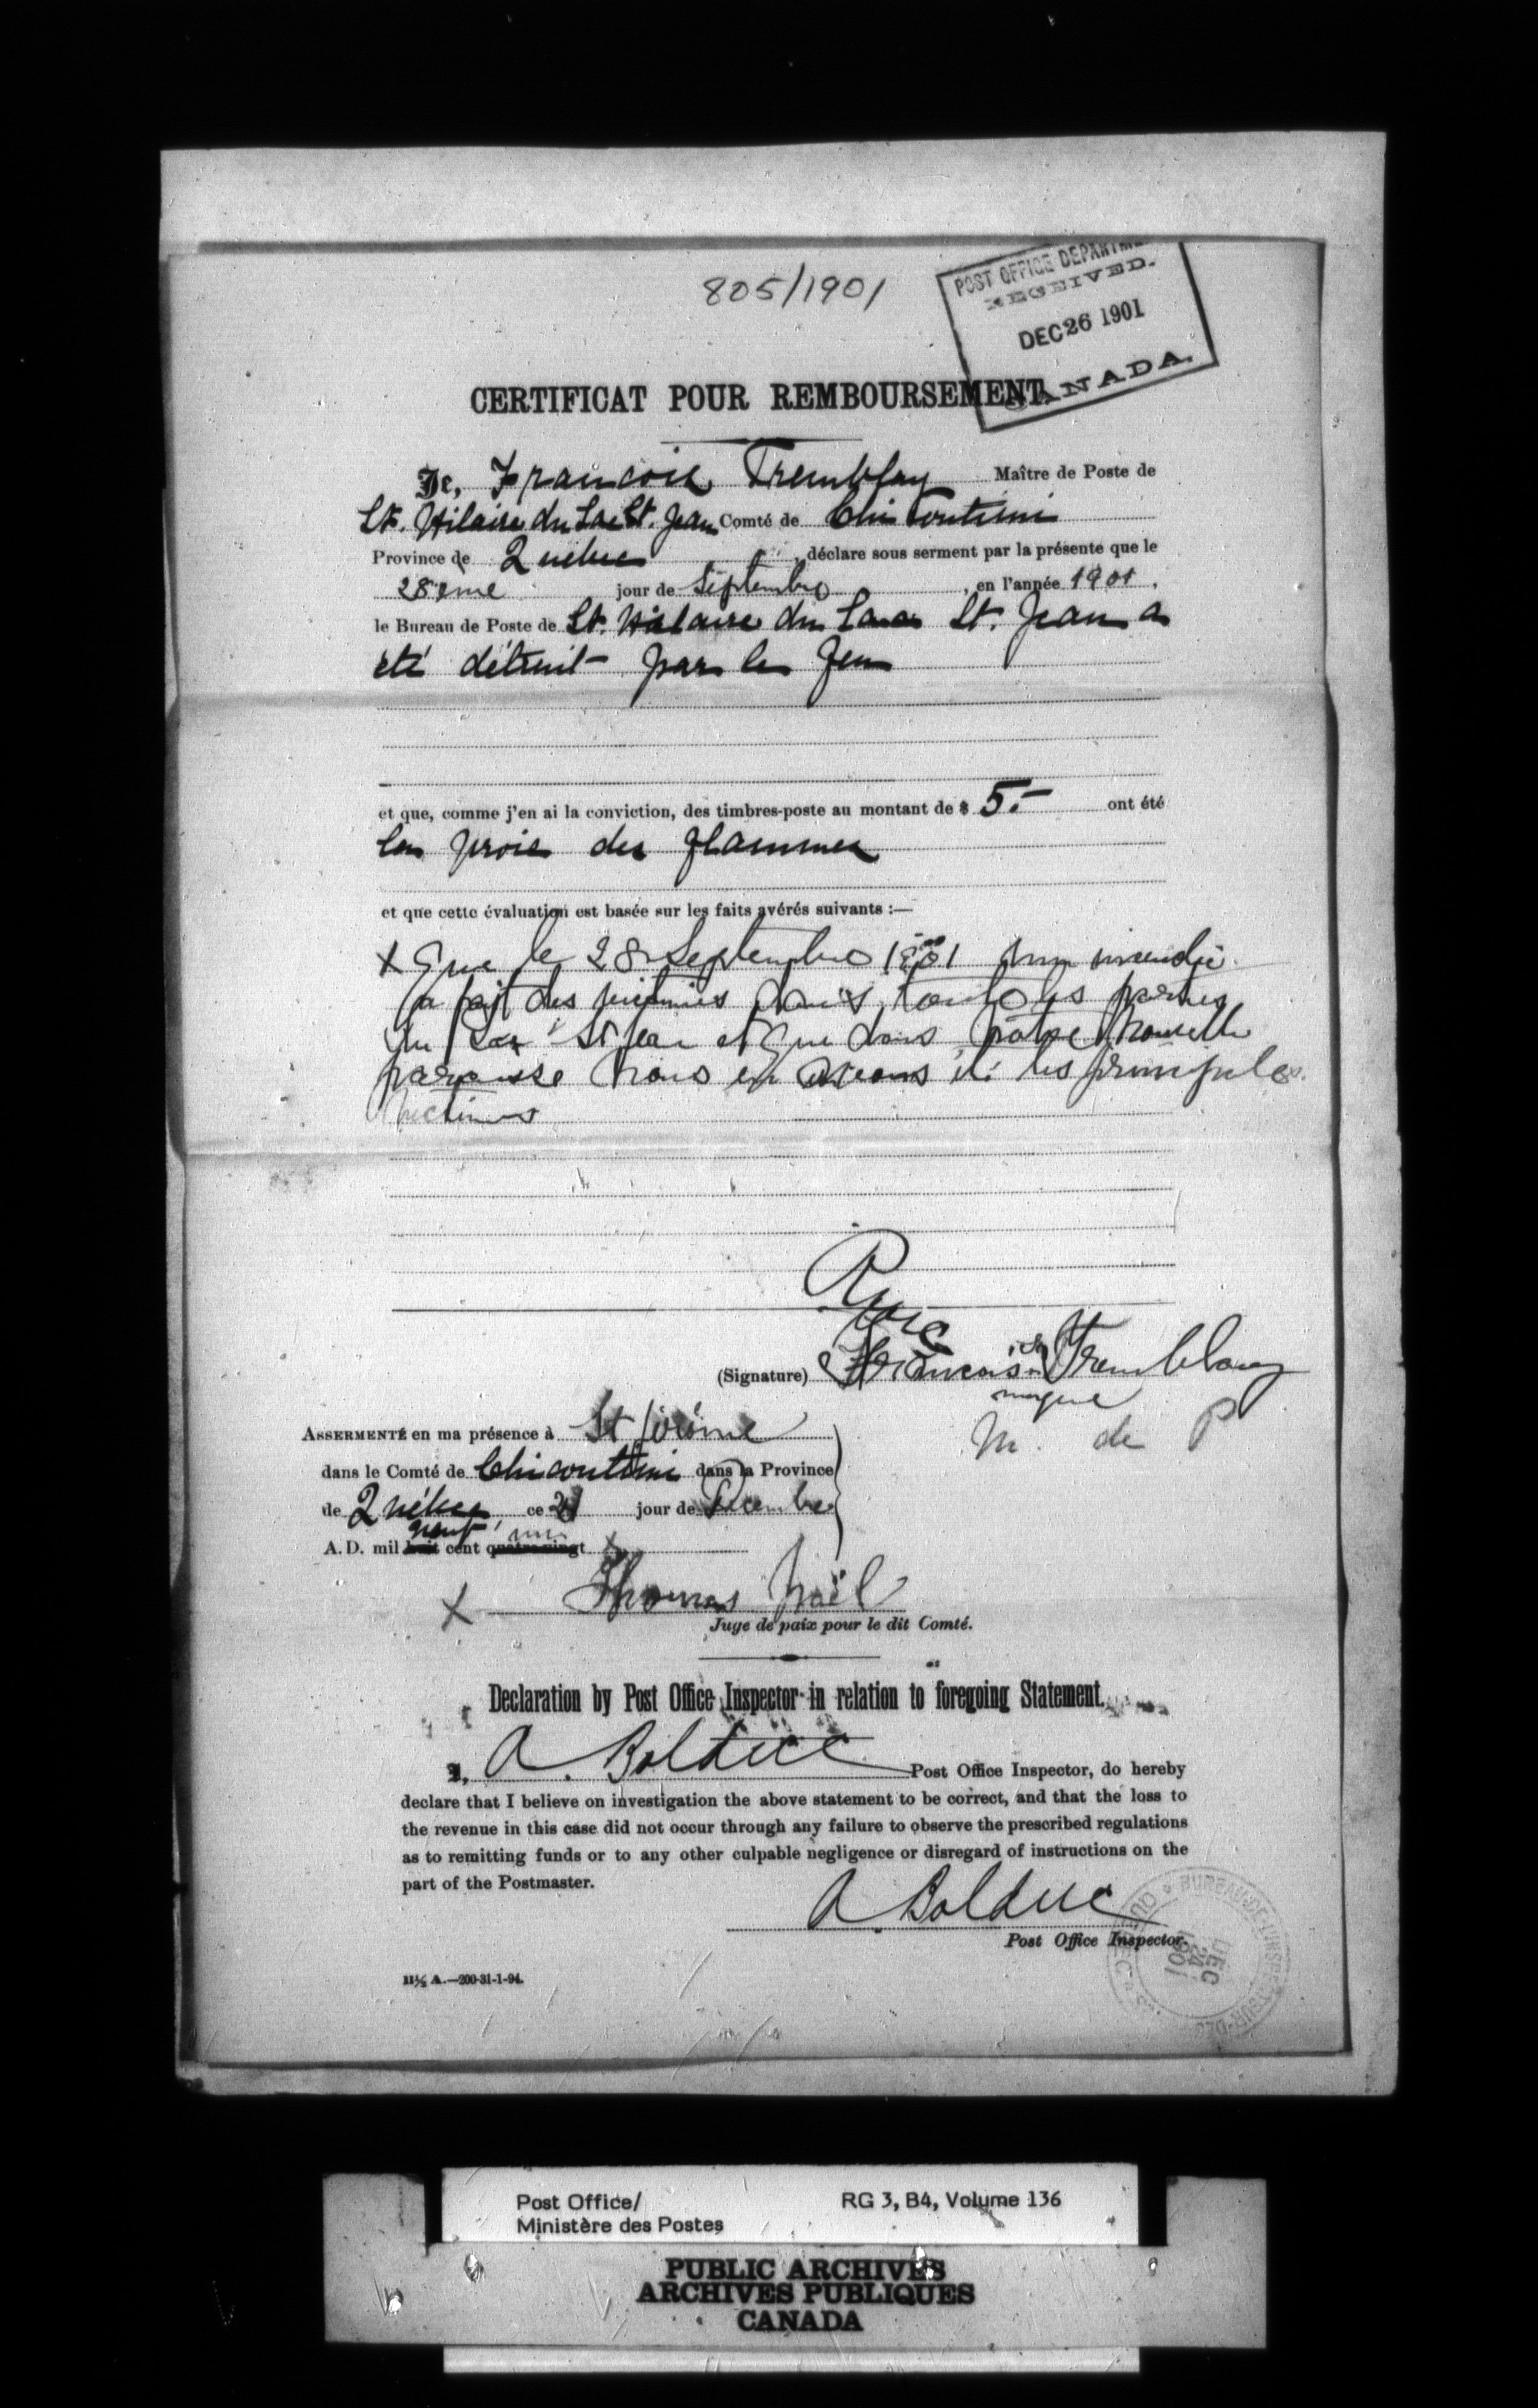 805/1901
POST OFFICE DEPARTME
RECEIVED.
DEC 26 1901
CANADA.
CERTIFICAT POUR REMBOURSEMENT
Je, Francois Tremblay Maître de Poste de
St. Hilaire du Lac St. Jean Comté de Chicoutimi
Province de Québec, déclare sous serment par la présente que le
28ème jour de Septembre, en l'année 1901.
le Bureau de Poste de St. Hilaire du Lac St. Jean a
été détruit par le feu
et que, comme j'en ai la conviction, des timbres-poste au montant de $ 5.- ont été
la proie des flammes
et que cette évaluation est basée sur les faits avérés suivants :—
X Que le 28 Septembre 1901 un incendie
a fait des victimes dans toute les parties
du Lac St Jean et que dans notre nouvelle
paroisse nous en avons été les principales
victimes
(Signature) Francois sa Tremblay
marque
M. de P
ASSERMENTÉ en ma présence à St Jérôme
dans le Comté de Chicoutimi dans la Province
de Québec, ce 21 jour de Décembre
neuf un
A. D. mil huit cent quatre-vingt
X Thomas Noël
Juge de paix pour le dit Comté.
Declaration by Post Office Inspector in relation to foregoing Statement.
I, A. Bolduc Post Office Inspector, do hereby
declare that I believe on investigation the above statement to be correct, and that the loss to
the revenue in this case did not occur through any failure to observe the prescribed regulations
as to remitting funds or to any other culpable negligence or disregard of instructions on the
part of the Postmaster.
A. Bolduc
Post Office Inspector.
BUREAU-DE-L'INSPECTEUR-DES
QUEBEC
DEC
24
1901
11½ A.—200-31-1-94.
Post Office/ RG 3, B4, Volume 136
Ministère des Postes
PUBLIC ARCHIVES
ARCHIVES PUBLIQUES
CANADA